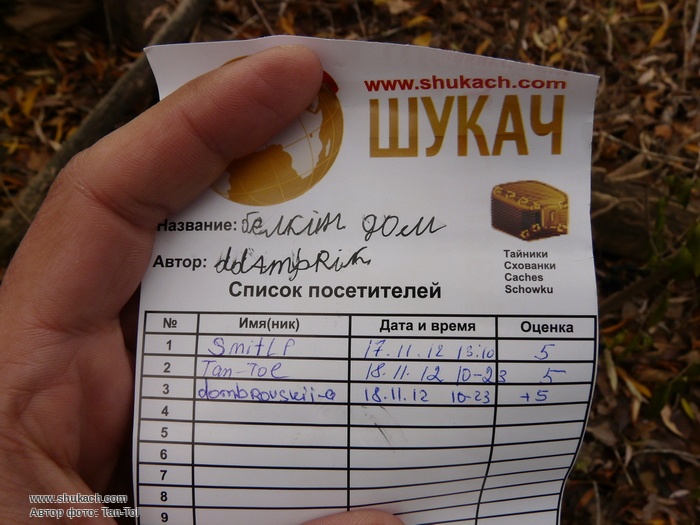 www.shukach.com
ШУКАЧ
Тайники
Схованки
Caches
Schowku
Название: белкін дом
Автор:
Список посетителей
№ Имя(ник) Дата и время Оценка
1 SmitLP 17.11.12 15:10 5
2 Tan-Tol 18.11.12 10-23 5
3 dombrovskii-a 18.11.12 10-23 +5
4
5
6
7
8
9
www.shukach.com
Автор фото: Tan-Tol